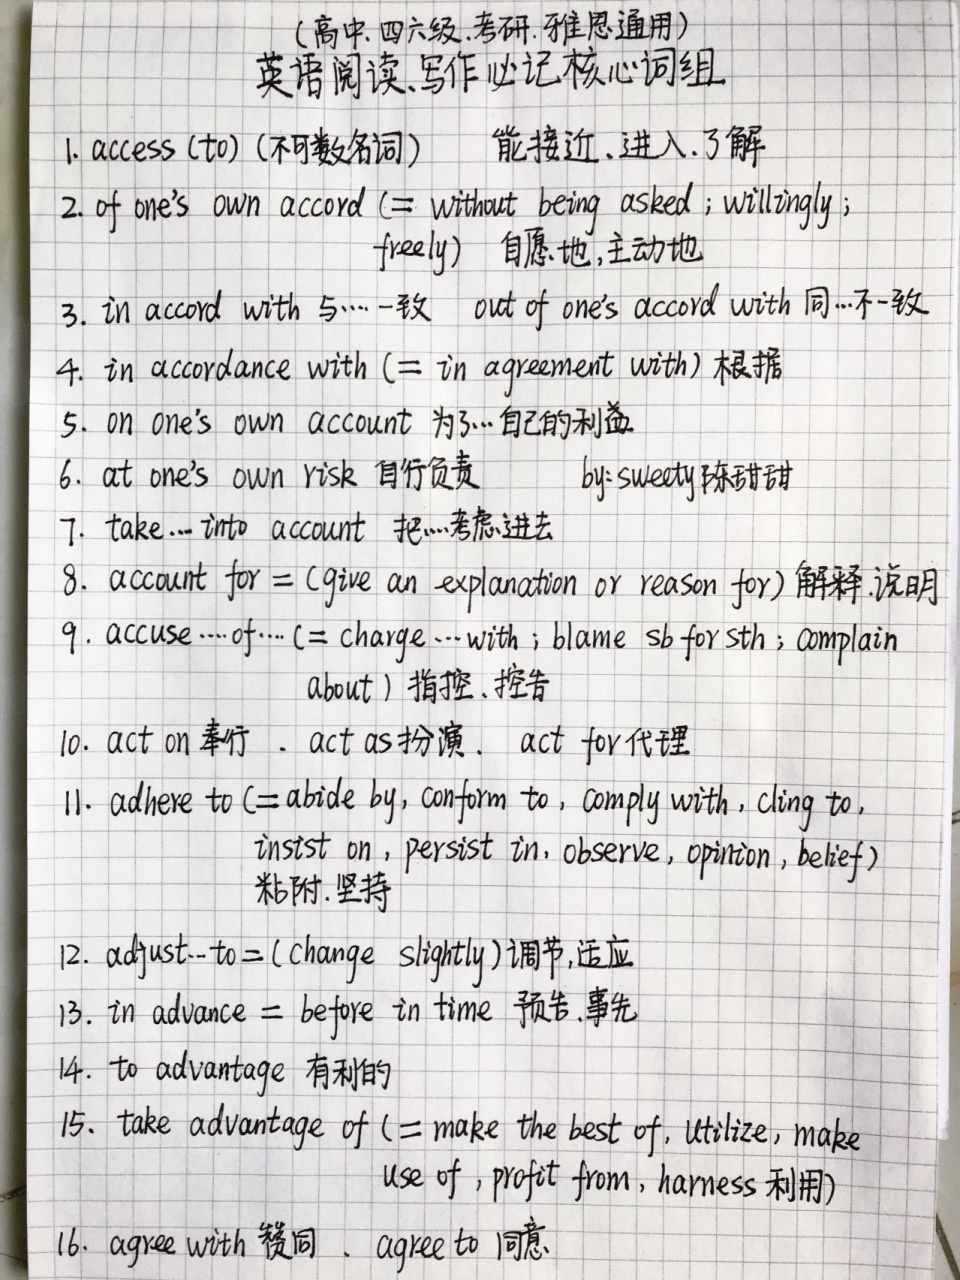 (高中.四六级.考研.雅思通用)
英语阅读、写作必记核心词组
1. access (to) (不可数名词) 能接近、进入、了解
2. of one's own accord (= without being asked ; willingly ;
freely) 自愿地,主动地
3. in accord with 与……一致 out of one's accord with 同…不一致
4. in accordance with (= in agreement with) 根据
5. on one's own account 为了…自己的利益
6. at one's own risk 自行负责 by: sweety陈甜甜
7. take … into account 把…考虑进去
8. account for = (give an explanation or reason for) 解释.说明
9. accuse …of… (= charge …with ; blame sb for sth ; complain
about ) 指控、控告
10. act on 奉行 . act as 扮演. act for 代理
11. adhere to (= abide by, conform to, comply with, cling to,
insist on, persist in, observe, opinion, belief)
粘附.坚持
12. adjust…to = (change slightly) 调节,适应
13. in advance = before in time 预告.事先
14. to advantage 有利的
15. take advantage of (= make the best of, utilize, make
use of, profit from, harness 利用)
16. agree with 赞同 、 agree to 同意